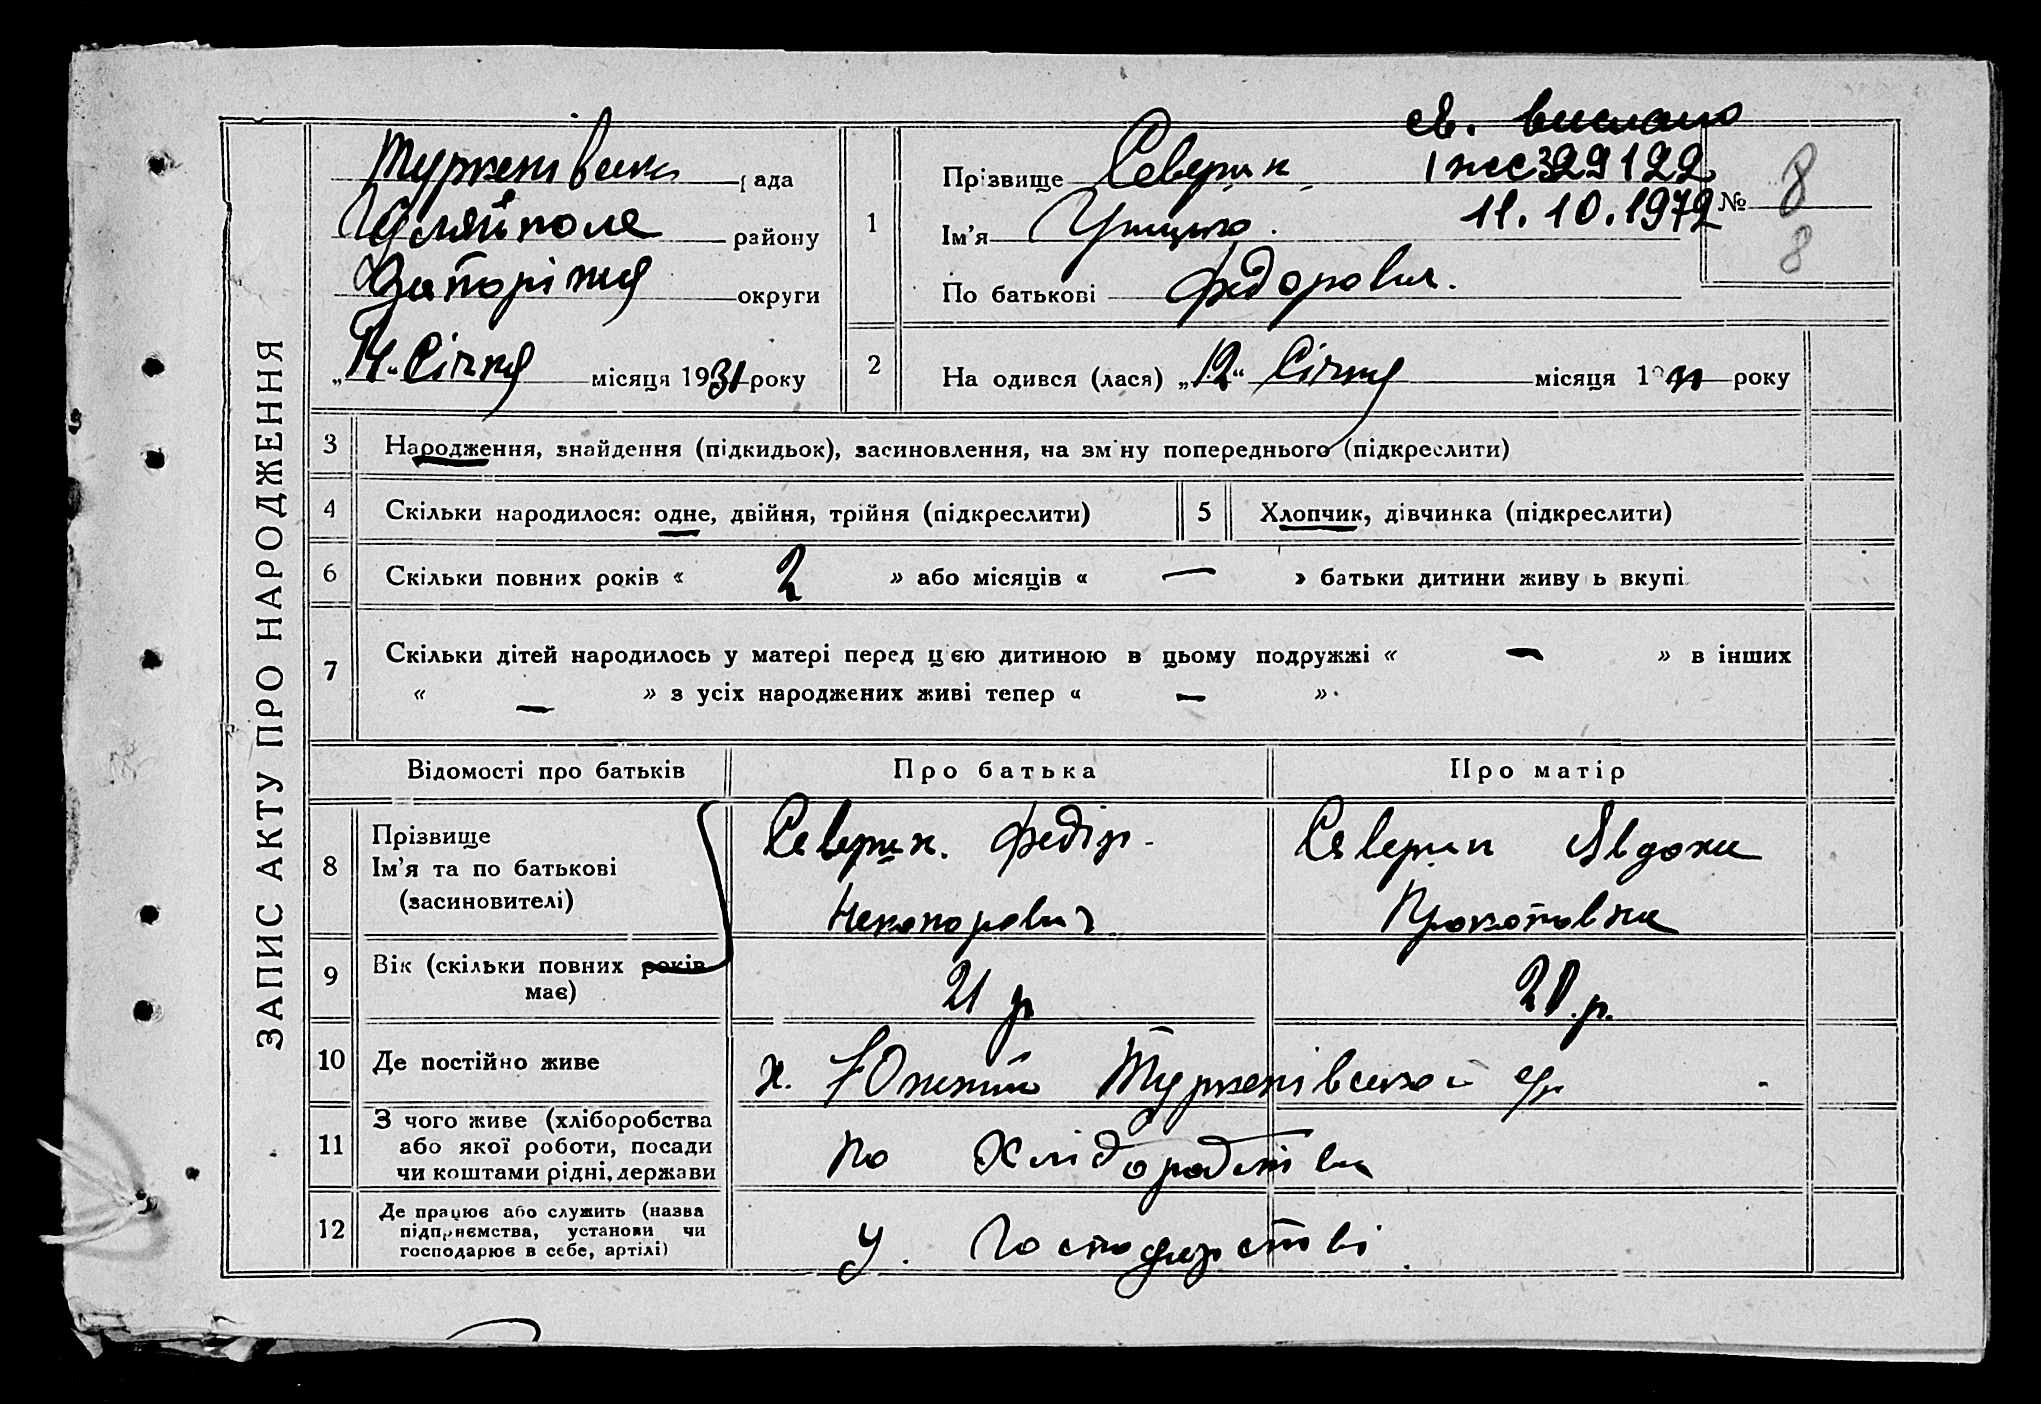 ЗАПИС АКТУ ПРО НАРОДЖЕННЯ
св. выслано
Туркенівська рада
Гуляйполя району
Запоріжжя округи
„14“ Січня місяця 1931 року
1 Прізвище Северин
I жс 329122
Ім'я Грицько.
11.10.1972
№ 8
8
По батькові Федорович.
2 На одився (лася) „12“ Січня місяця 1931 року
3 Народження, знайдення (підкидьок), засиновлення, на зм ну попереднього (підкреслити)
4 Скільки народилося: одне, двійня, трійня (підкреслити)
5 Хлопчик, дівчинка (підкреслити)
6 Скільки повних років « 2 » або місяців « — » батьки дитини живу ь вкупі
7 Скільки дітей народилось у матері перед цією дитиною в цьому подружжі « — » в інших
« — » з усіх народжених живі тепер « — ».
Відомості про батьків Про батька Про матір
8 Прізвище
Ім'я та по батькові
(засиновителі)
Северин. Федір
Никонорович
Северин Явдоха
Прокоповна
9 Вік (скільки повних років
має)
21 р
20.р.
10 Де постійно живе
х. Южний Туркенівської с/р
11 З чого живе (хліборобства
або якої роботи, посади
чи коштами рідні, держави
по Хліборобстві
12 Де працює або служить (назва
підприємства, установи чи
господарює в себе, артілі)
у. Господарстві